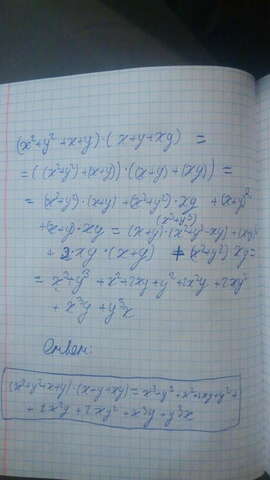 (x²+y²+x+y)·(x+y+xy) =
=((x²+y²)+(x+y))·((x+y)+(xy)) =
= (x²+y²)·(x+y)+(x²+y²)·xy +(x+y)²
+(x+y)·xy =
= x³+y³+x²+2xy+y²+2x²y+2xy²
+ x³y + y³x
Ответ:
(x²+y²+x+y)·(x+y+xy)=x³+y³+x²+2xy+y²+
+ 2x²y+2xy²+x³y+y³x